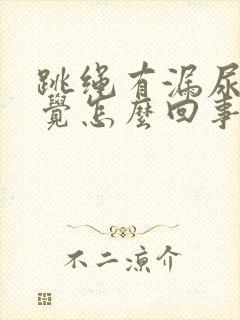 跳绳有漏尿
覺怎麼回事
不二凉介